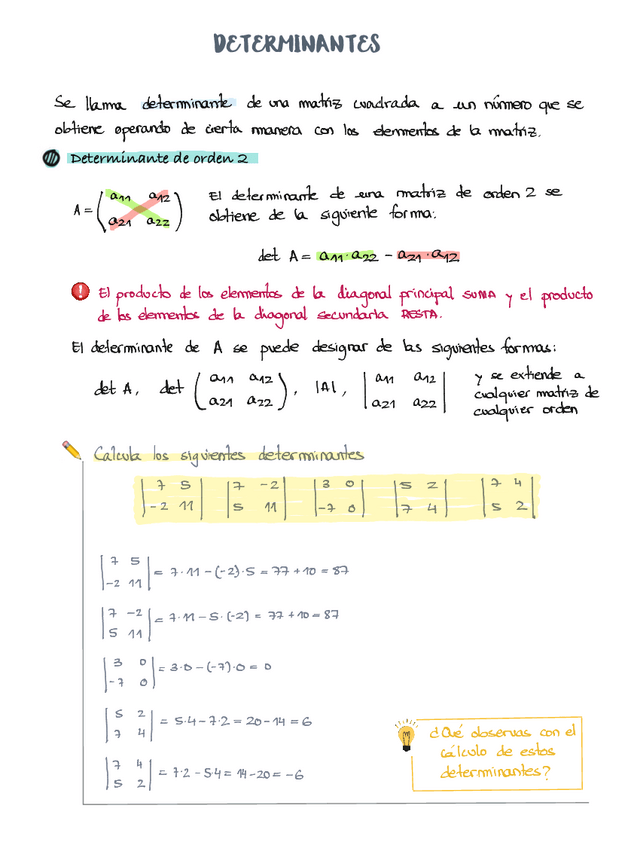 DETERMINANTES
Se llama determinante de una matriz cuadrada a un número que se
obtiene operando de cierta manera con los elementos de la matriz.
Determinante de orden 2
A = ( a11 a12
a21 a22 )
El determinante de una matriz de orden 2 se
obtiene de la siguiente forma:
det A = a11 · a22 - a21 · a12
! El producto de los elementos de la diagonal principal SUMA y el producto
de los elementos de la diagonal secundaria RESTA.
El determinante de A se puede designar de las siguientes formas:
det A, det ( a11 a12
a21 a22 ), |A|, | a11 a12
a21 a22 |
y se extiende a
cualquier matriz de
cualquier orden
Calcula los siguientes determinantes
| 7 5 | | 7 -2 | | 3 0 | | 5 2 | | 7 4 |
| -2 11 | | 5 11 | | -7 0 | | 7 4 | | 5 2 |
| 7 5
-2 11 | = 7·11 - (-2)·5 = 77 + 10 = 87
| 7 -2
5 11 | = 7·11 - 5·(-2) = 77 + 10 = 87
| 3 0
-7 0 | = 3·0 - (-7)·0 = 0
| 5 2
7 4 | = 5·4 - 7·2 = 20 - 14 = 6
| 7 4
5 2 | = 7·2 - 5·4 = 14 - 20 = -6
¿Qué observas con el
cálculo de estos
determinantes?